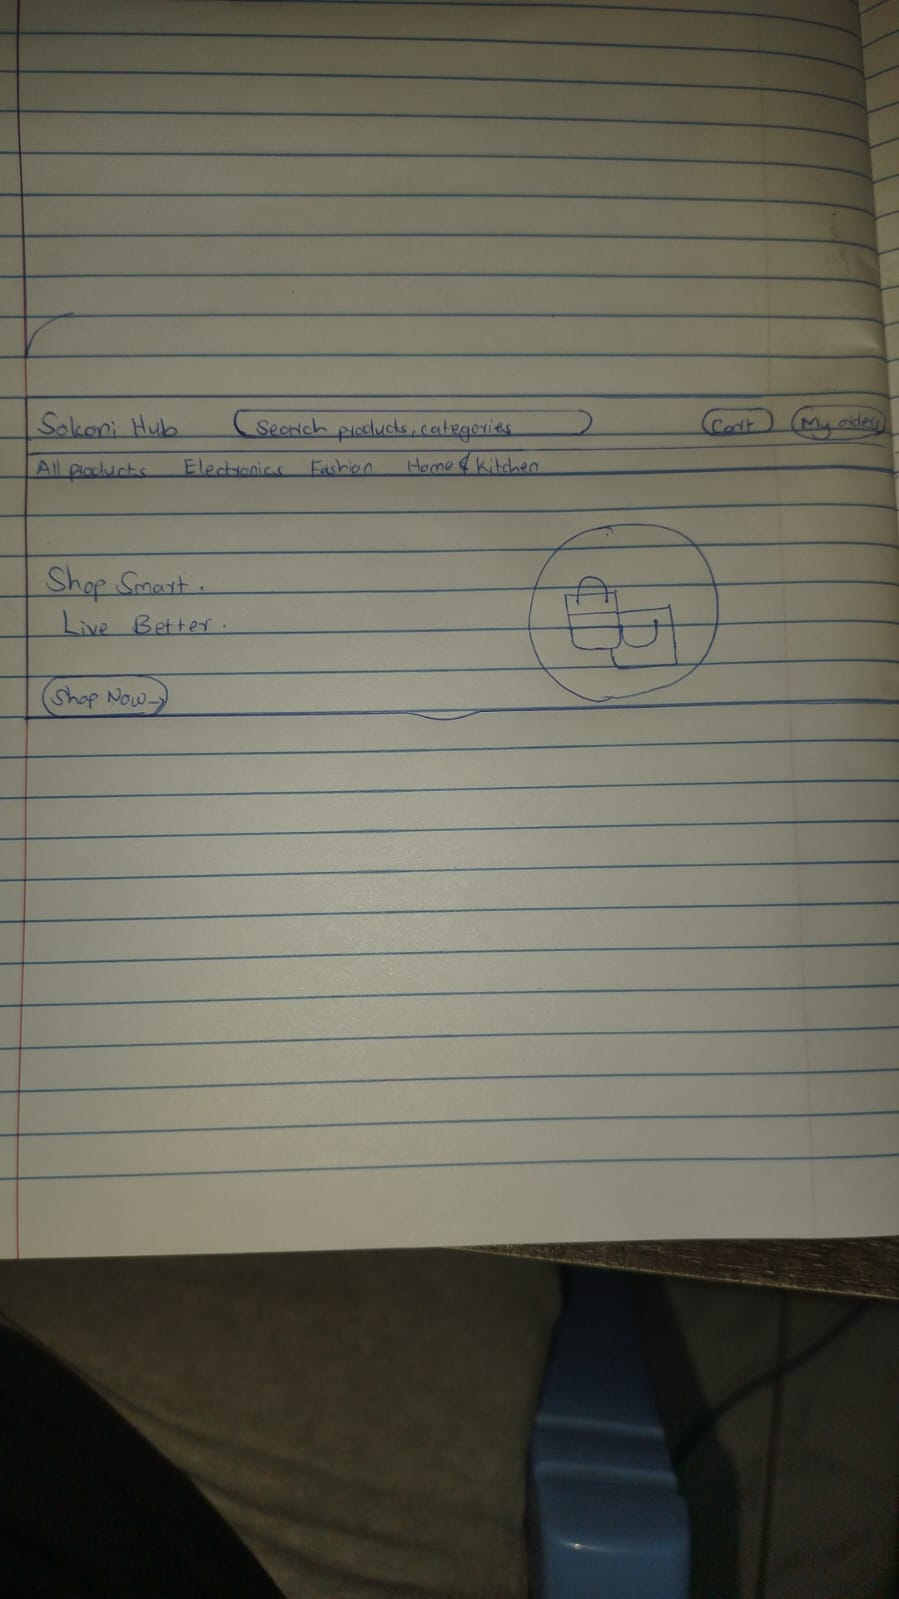 Sokoni Hub Search products, categories Cart My orders
All products Electronics Fashion Home & Kitchen
Shop Smart.
Live Better.
Shop Now→